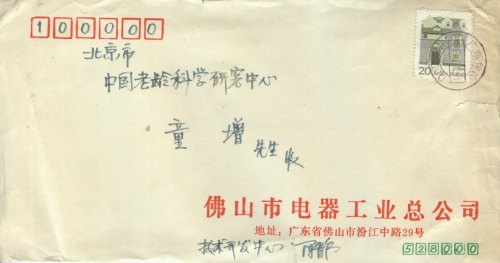 100000
北京市
中国老龄科学研究中心
童增
先生收
20
佛山市电器工业总公司
地址：广东省佛山市汾江中路29号
技术开发中心
528000